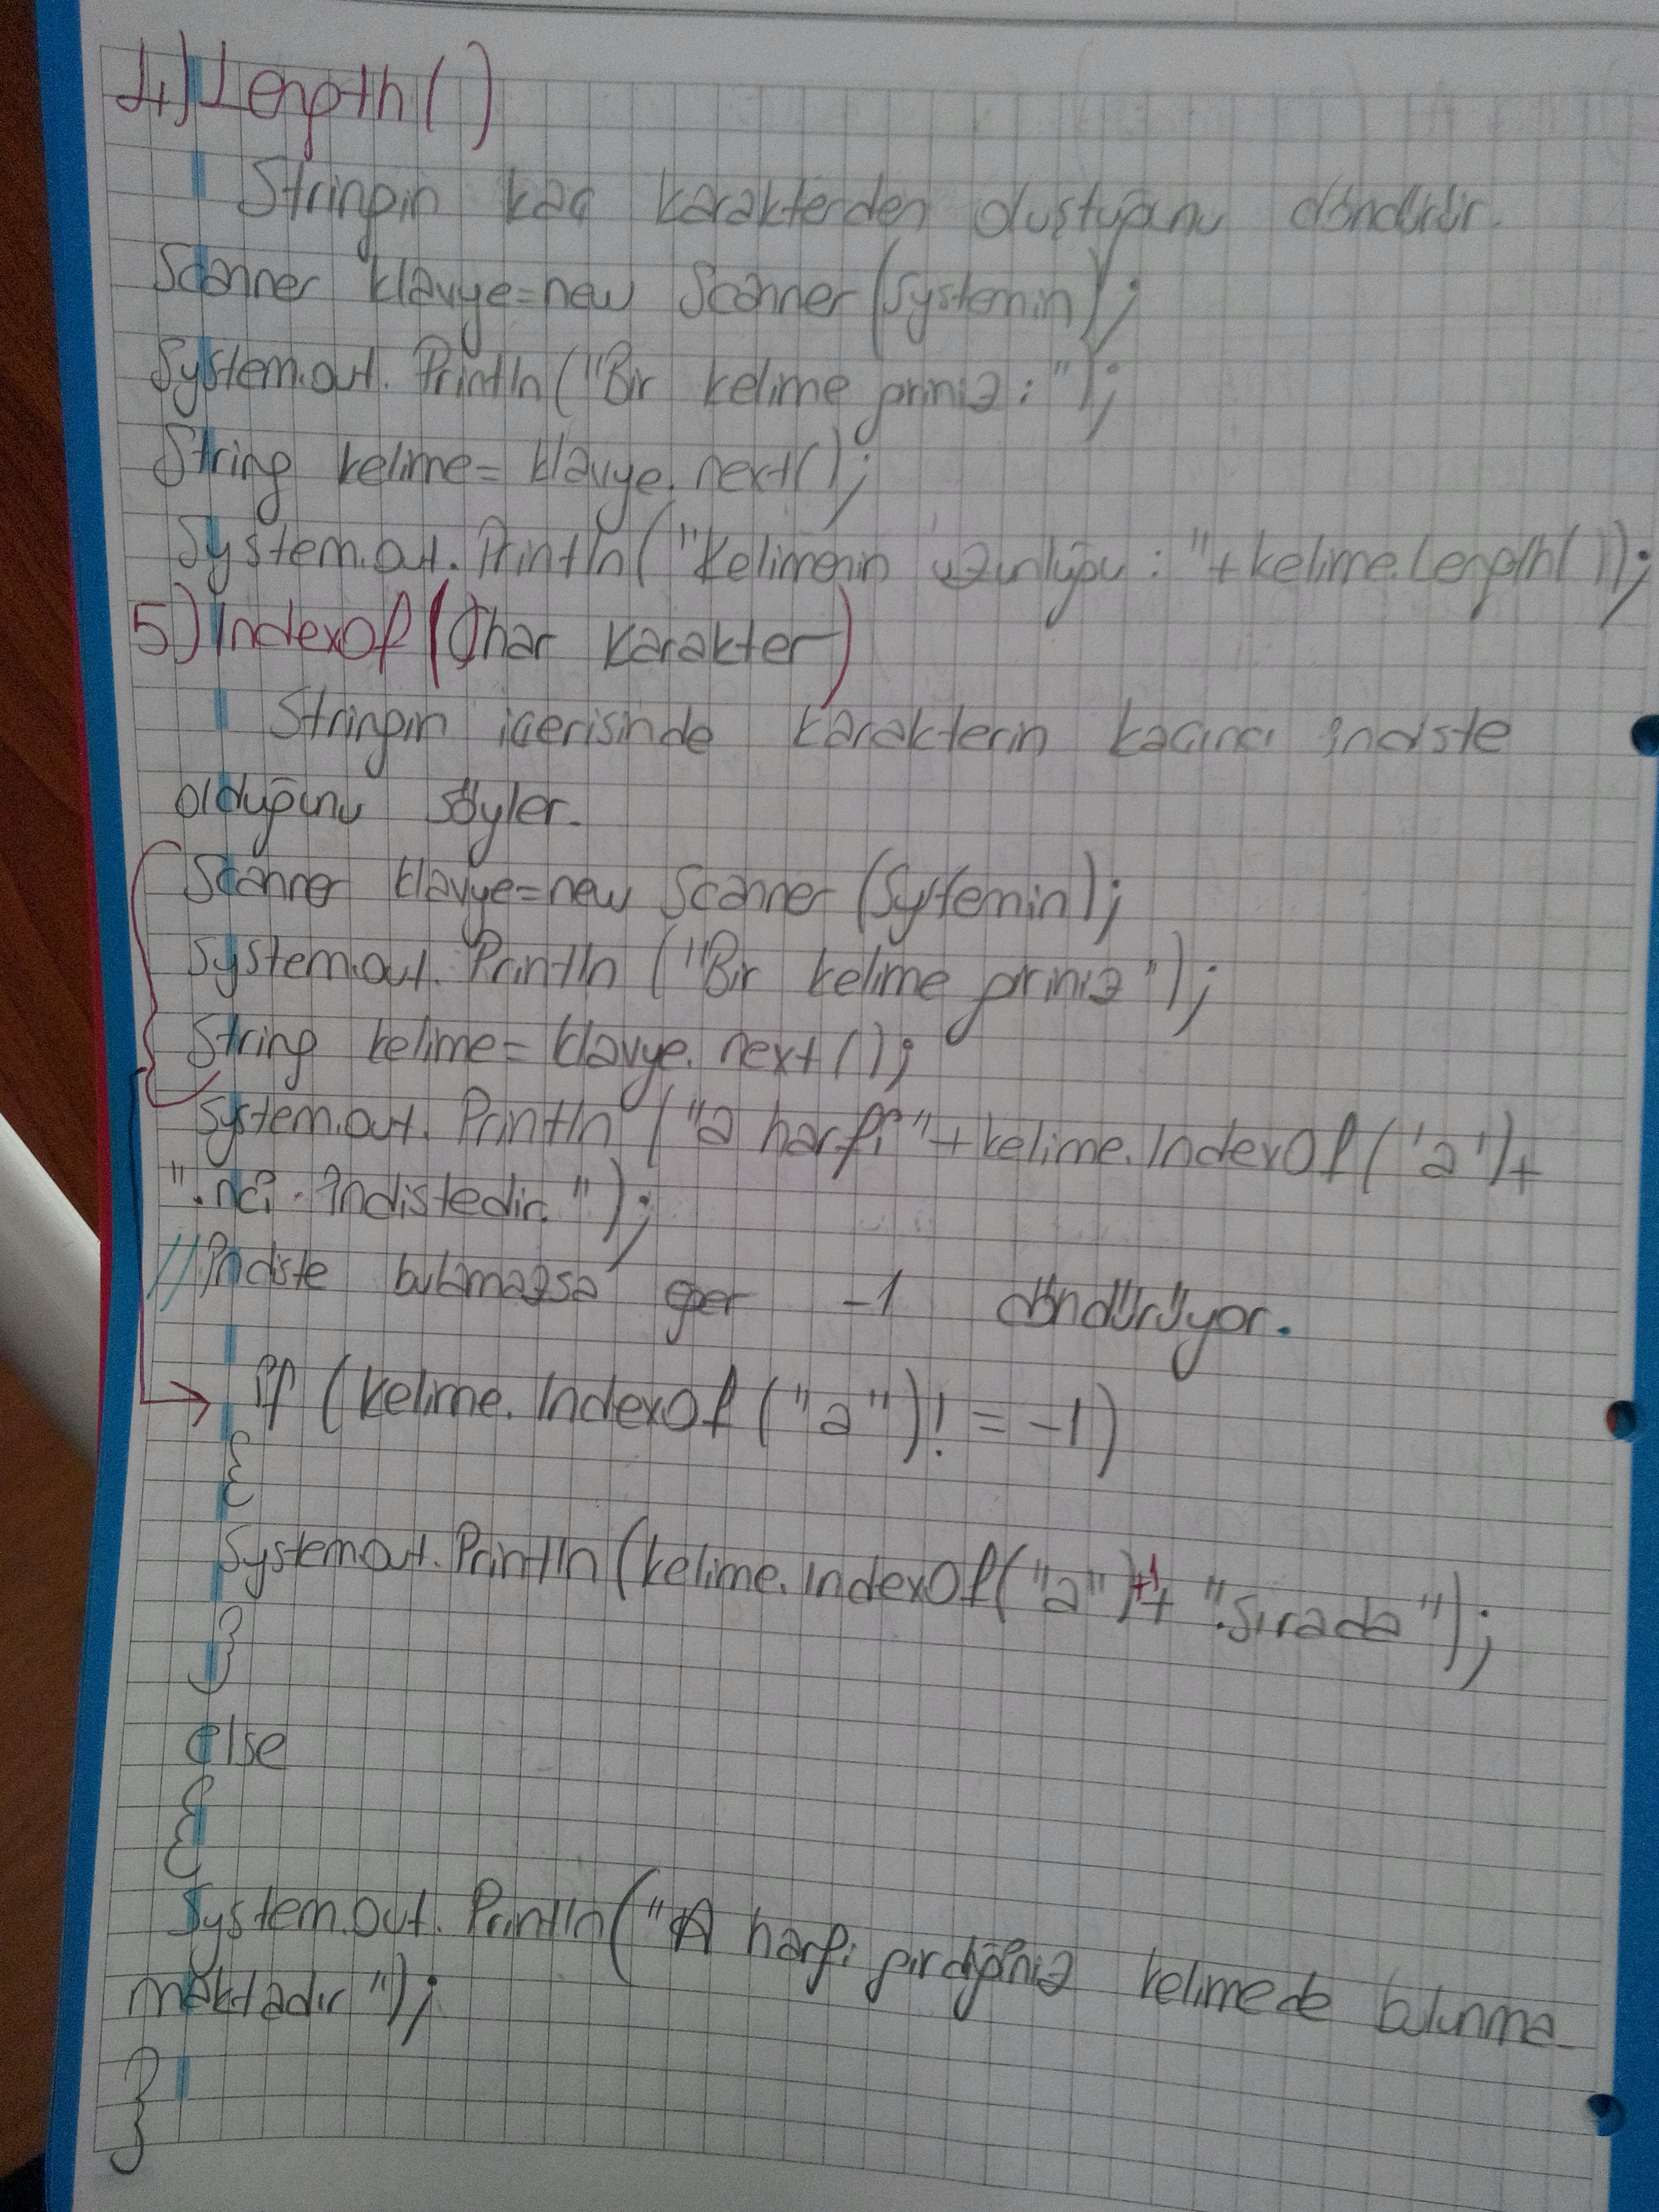 4) Length()
Stringin kaç karakterden oluştuğunu döndürür.
Scanner klavye=new Scanner(System.in);
System.out.Println("Bir kelime giriniz:");
String kelime= klavye.next();
System.out.Println("Kelimenin uzunluğu : "+kelime.Length());
5) IndexOf(Char karakter)
Stringin içerisinde karakterin kaçıncı indiste
olduğunu söyler.
Scanner klavye=new Scanner(System.in);
System.out.Println("Bir kelime giriniz");
String kelime= klavye.next();
System.out.Println("a harfi"+kelime.IndexOf('a')+
".nci indistedir.");
//İndiste bulamazsa eğer -1 döndürüyor.
if (kelime.IndexOf("a")!= -1)
{
System.out.Println(kelime.IndexOf("a")+1+ ".sırada");
}
else
{
System.out.Println("A harfi girdiğiniz kelimede bulunma
maktadır");
}